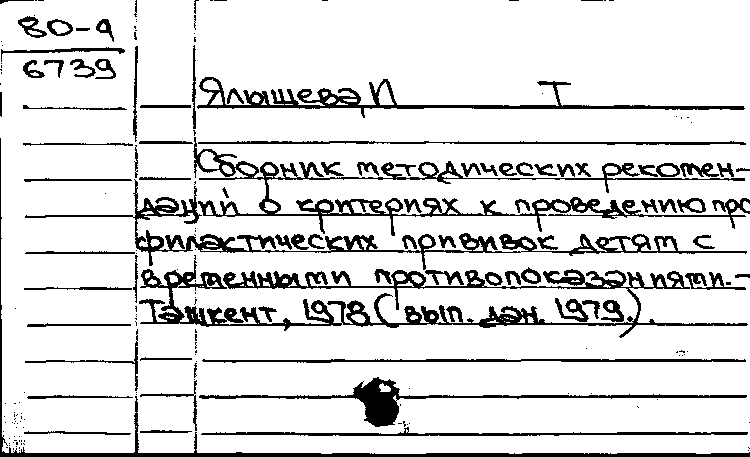 80-4
6739
Ялышева, П Т
Сборник методических рекомен-
даций о критериях к проведению про
филактических прививок детям с
временными противопоказаниями.-
Ташкент, 1978 (вып. дан. 1979.).